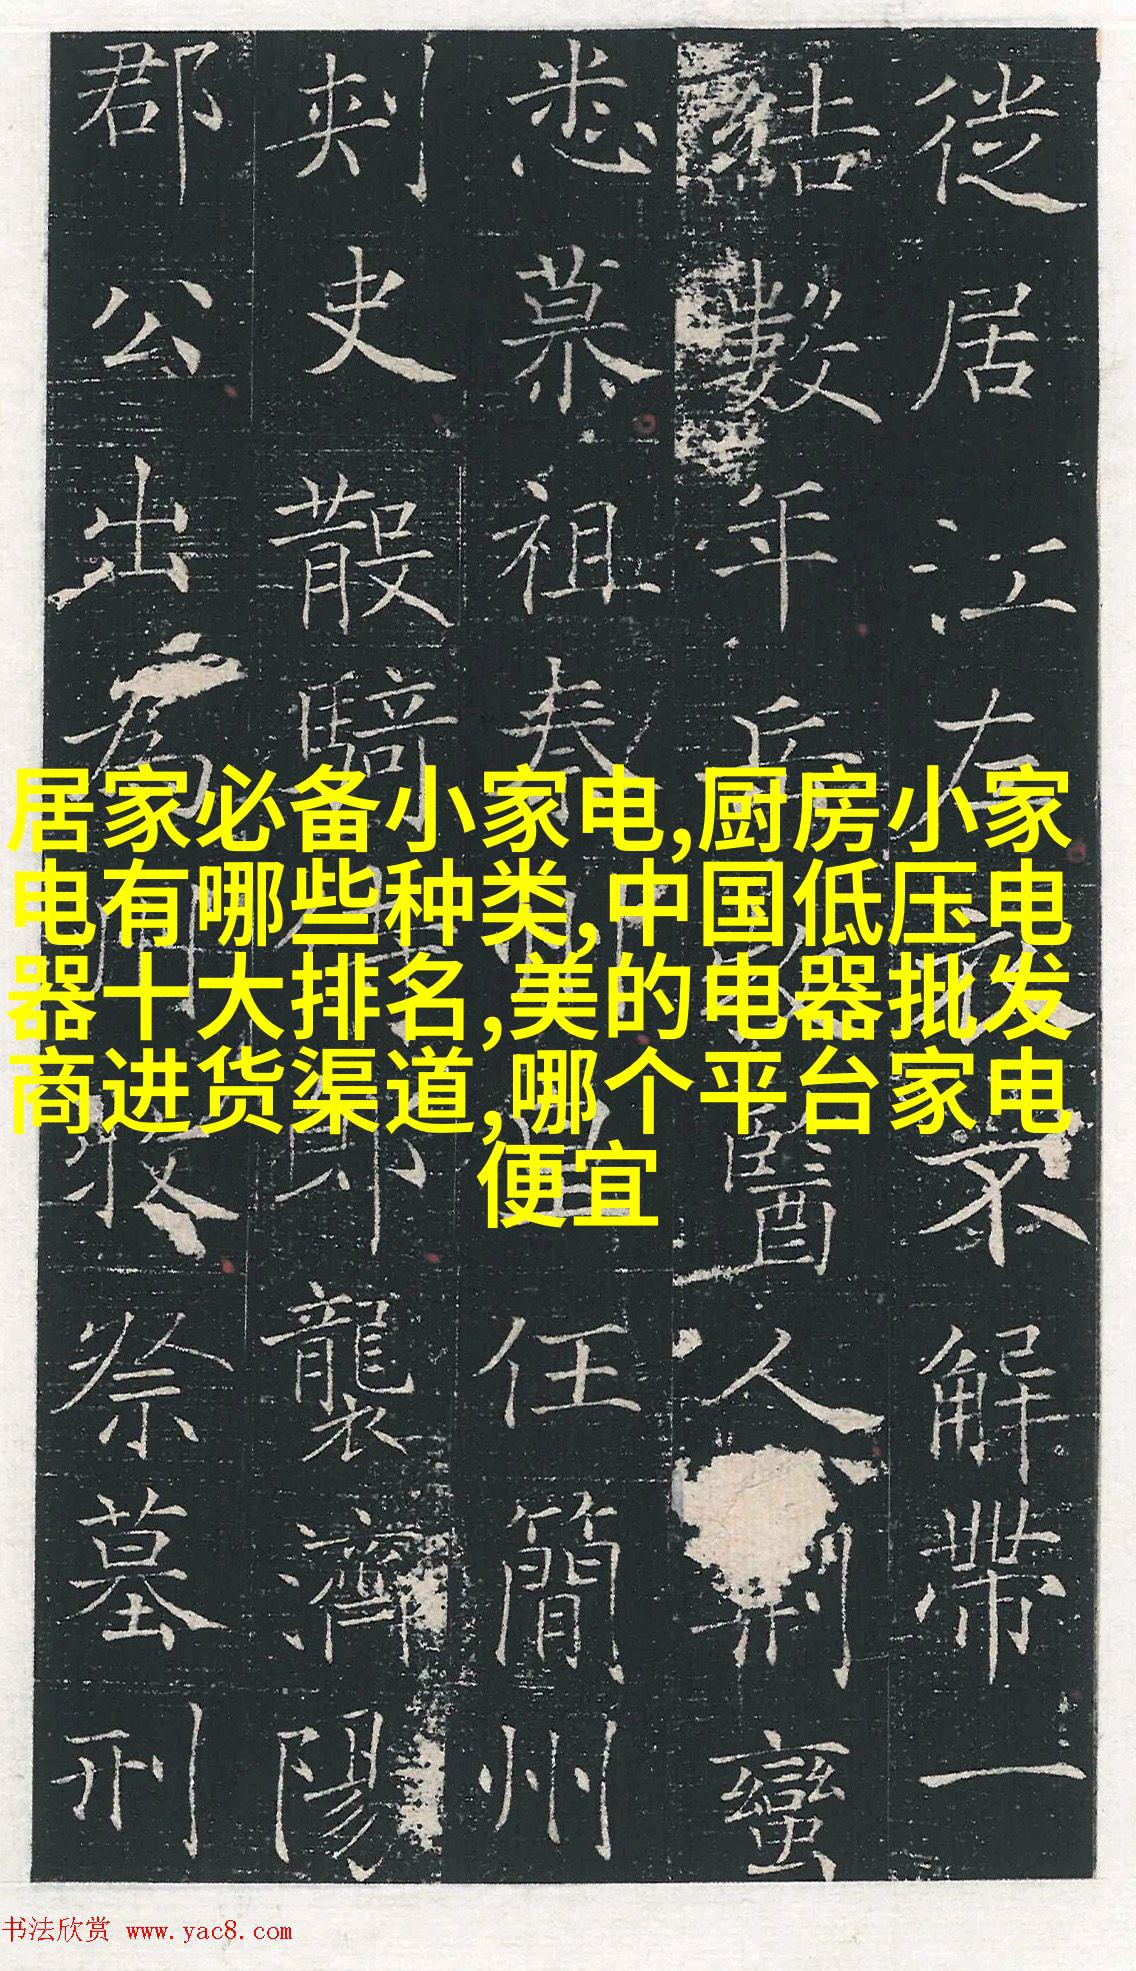 徙居江左
不解帶一
結數年
醫人
蠻
悉慕祖
任簡州
刺史散騎
襲濟陽
郡公出為
祭墓刑
居家必备小家电,厨房小家
电有哪些种类,中国低压电
器十大排名,美的电器批发
商进货渠道,哪个平台家电
便宜
书法欣赏 www.yac8.com